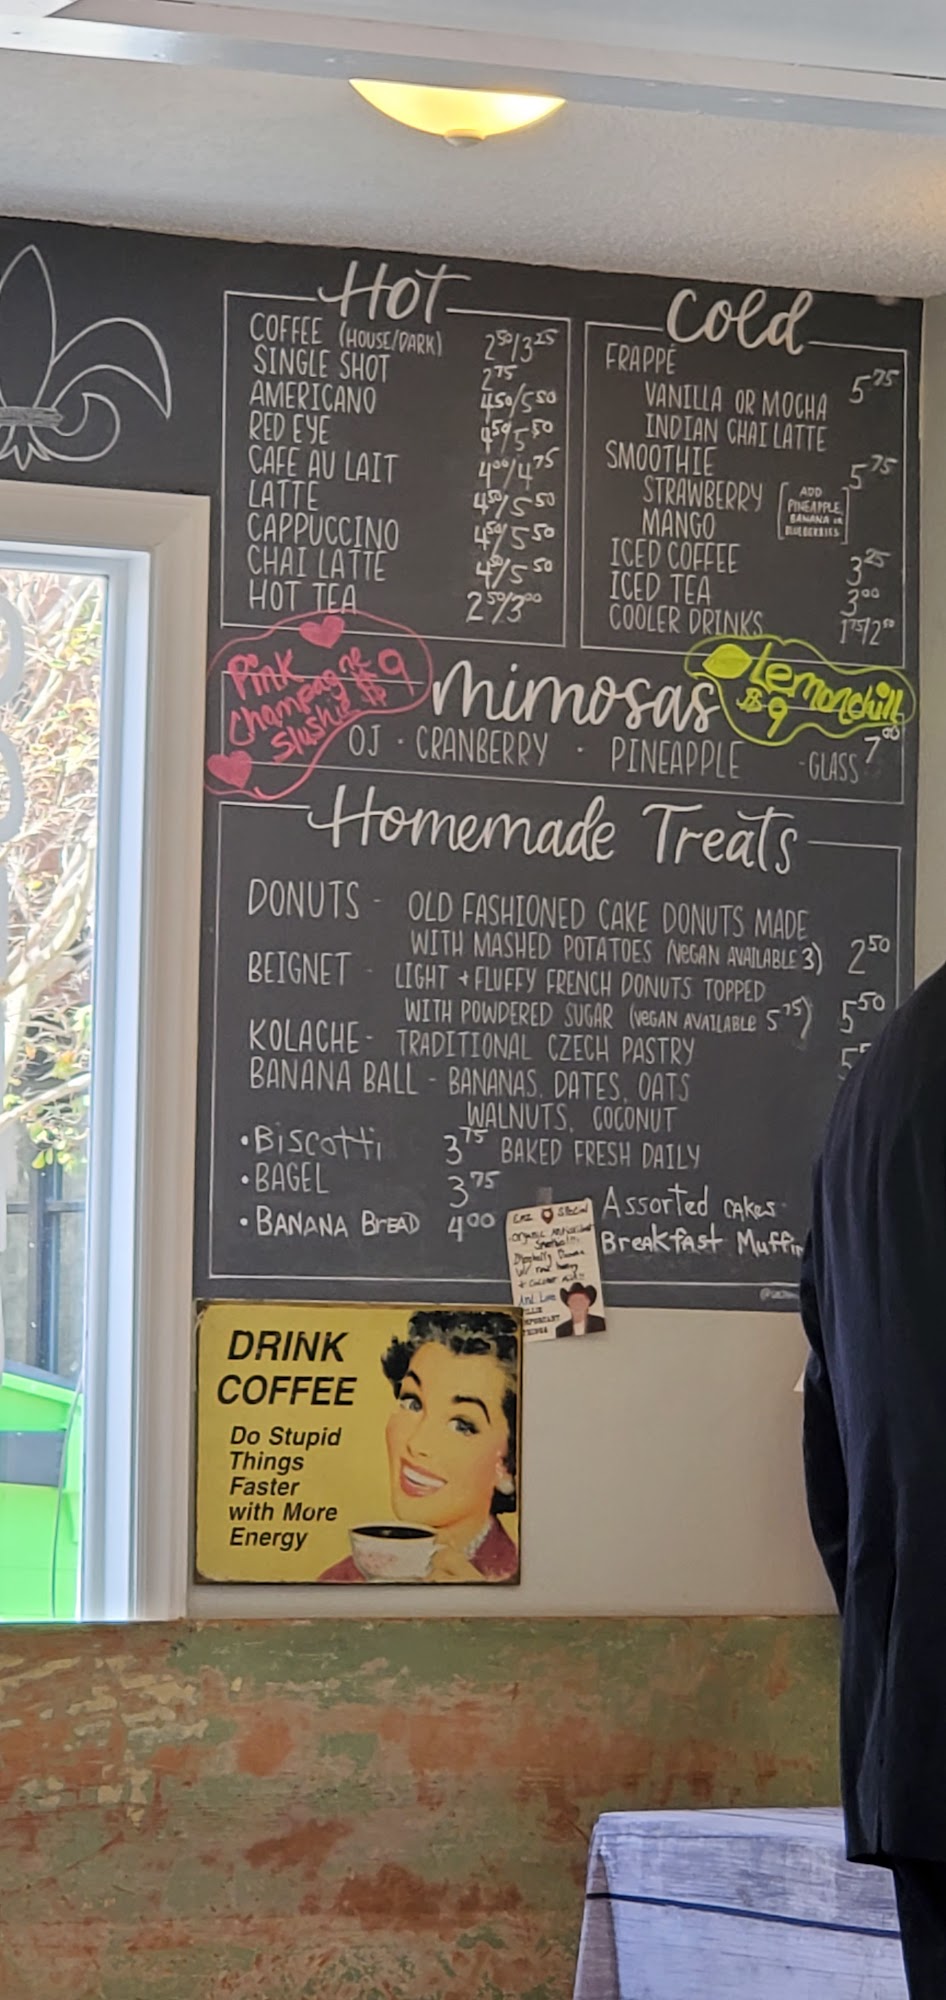 Hot
COFFEE (HOUSE/DARK) 2⁵⁰/3²⁵
SINGLE SHOT 2⁷⁵
AMERICANO 4⁵⁰/5⁵⁰
RED EYE 4⁵⁰/5⁵⁰
CAFE AU LAIT 4⁰⁰/4⁷⁵
LATTE 4⁵⁰/5⁵⁰
CAPPUCCINO 4⁵⁰/5⁵⁰
CHAI LATTE 4⁵⁰/5⁵⁰
HOT TEA 2⁵⁰/3⁰⁰
Cold
FRAPPÉ 5⁷⁵
VANILLA OR MOCHA
INDIAN CHAI LATTE
SMOOTHIE 5⁷⁵
STRAWBERRY
MANGO
[ADD
PINEAPPLE,
BANANA OR
BLUEBERRIES]
ICED COFFEE 3²⁵
ICED TEA 3⁰⁰
COOLER DRINKS 1⁷⁵/2⁵⁰
Pink
Champagne
Slushie $9
mimosas
Lemonchill
$9
OJ · CRANBERRY · PINEAPPLE - GLASS 7⁰⁰
Homemade Treats
DONUTS - OLD FASHIONED CAKE DONUTS MADE
WITH MASHED POTATOES (VEGAN AVAILABLE 3) 2⁵⁰
BEIGNET - LIGHT + FLUFFY FRENCH DONUTS TOPPED
WITH POWDERED SUGAR (VEGAN AVAILABLE 5⁷⁵) 5⁵⁰
KOLACHE - TRADITIONAL CZECH PASTRY
BANANA BALL - BANANAS, DATES, OATS
WALNUTS, COCONUT
• BISCOTTI 3⁷⁵ BAKED FRESH DAILY
• BAGEL 3⁷⁵
• BANANA BREAD 4⁰⁰
Assorted cakes
Breakfast Muffin
SPECIAL
Organic Antioxidant
And Love
DRINK
COFFEE
Do Stupid
Things
Faster
with More
Energy